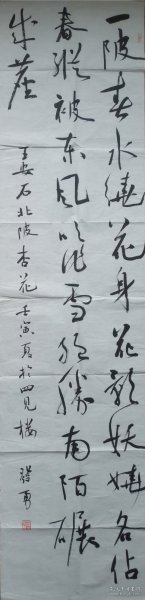 一陂春水绕花身花影妖娆各占
春纵被东风吹作雪绝胜南陌碾
成尘
王安石北陂杏花壬寅夏於四见楼